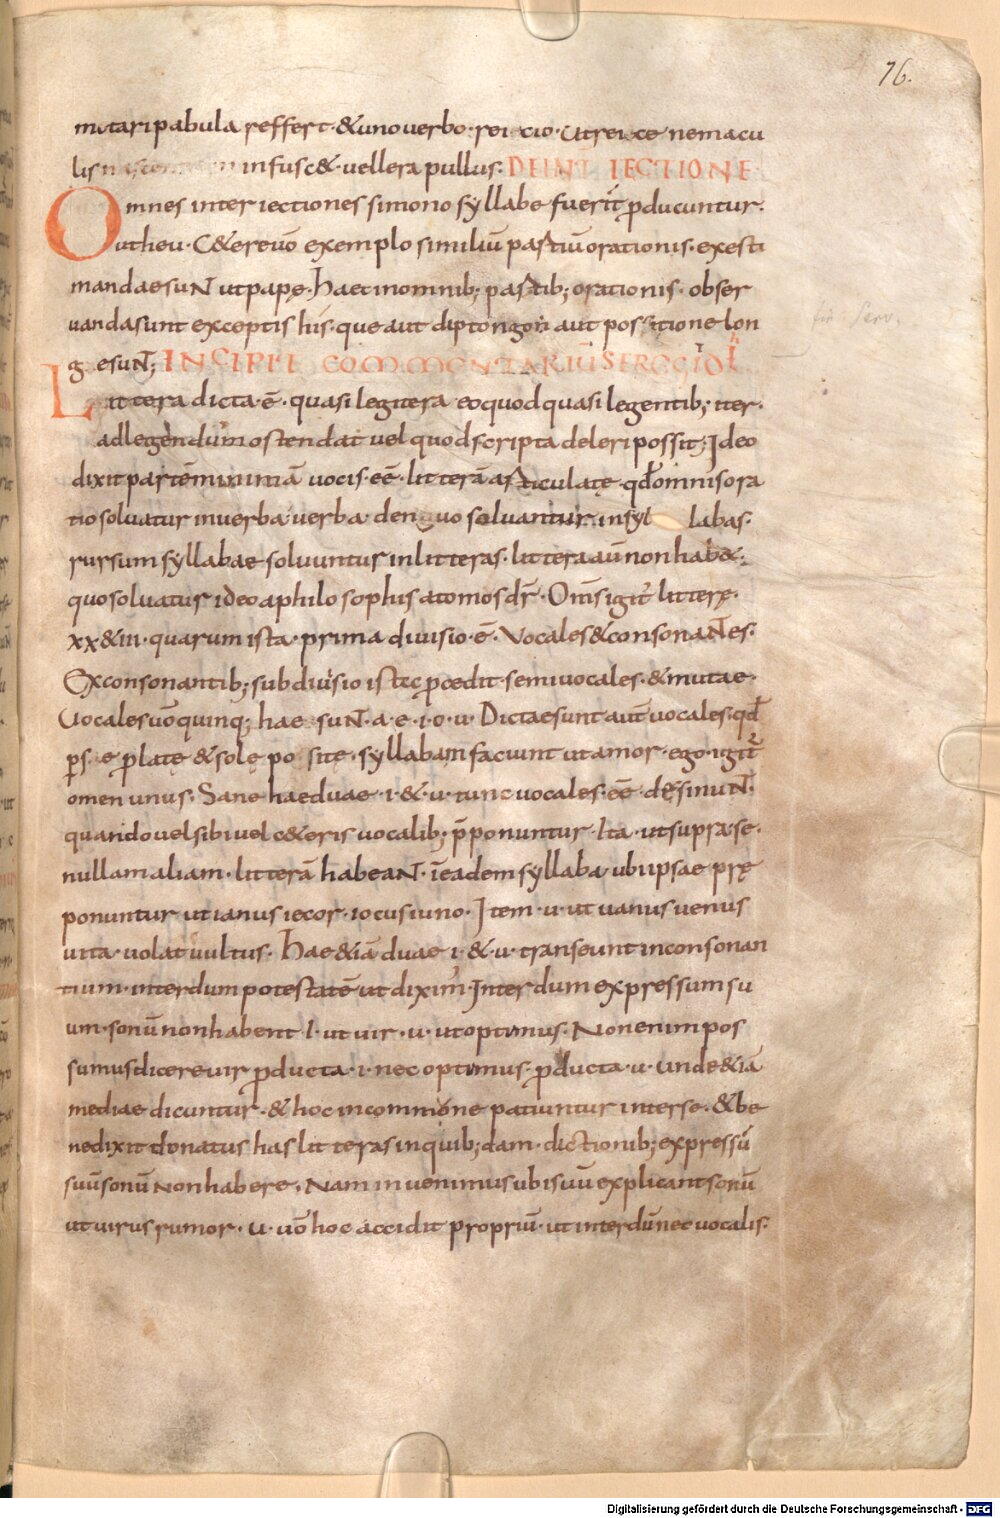 76.
mutari pabula reffert · & uno verbo · rei cio · Ut rei ce ne macu
lis infusc& · vellera pullus · DE INT IECTIONE
Omnes inter iectiones si mono syllabe fuerit pducuntur ·
ut heu · C&ere uō exemplo similiū partiū orationis · exesti
mandae suNt ut papę · haec in omnib; partib; orationis · obser
uanda sunt exceptis his · que aut diptongon aut possitione lon
gę suNt; INCIPIT COMMENTARIUS SERGII
Littera dicta · ē · quasi legitera eo quod quasi legentib; iter ·
ad legendum ostendat uel quod scripta deleri possit; Ideo
dixit partēm minimā uocis · eē · litterā articulatę · qđ omnis ora
tio soluatur in uerba · uerba denuo soluantur · in syl labas ·
rursum syllabae soluuntur in litteras · littera aū non hab& ·
quo soluatur ideo a philosophis atomos dr̄ · Om̄s igit litterę ·
xx & iii · quarum ista · prima diuisio · ē · Vocales & consonaNtes ·
Ex consonantib; sub diuisio istęc pcedit · semiuocales · & mutae ·
Uocales uō quinq; hae suNt · a · e · i · o · u · Dictae sunt aut uocales · qđ
p s e platę & solę po site · syllabam faciunt ut amor · ego · igit
omen unus · Sane hae duae · i · & · u · tunc uocales · eē · desinuNt ·
quando uel sibi uel c&eris uocalib; pponuntur · Ita · ut supra · se ·
nullam aliam · litterā habeaNt · ī eadem syllaba · ubi ipsae prę
ponuntur ut ianus iecor · iocus iuno · Item · u · ut uanus uenus
uita · uolat uultus · Hae &iā duae · i · & · u · transeunt in consonan
tium · interdum potestatē ut diximꝰ · Interdum expressum su
um · sonū non habent · I · ut uir · u · ut optumus · Non enim pos
sumus dicere uir pducta · i · nec optumus · pducta · u · unde &iā
mediae dicuntur · & hoc in commōne patiuntur inter se · & be
ne dixit donatus has litteras in quib; dam · dictionib; expressū
suū sonū non habere · Nam inuenimus ubi suū explicant sonū
ut uirus rumor · u · uō hoc accidit propriū · ut interdū nec uocalis ·
Digitalisierung gefördert durch die Deutsche Forschungsgemeinschaft - DFG